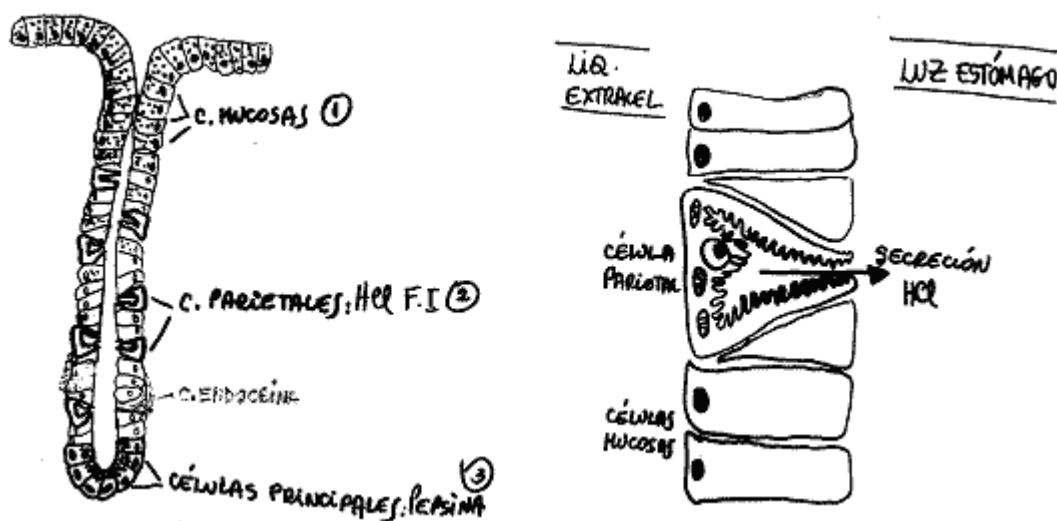 C. MUCOSAS ①
C. PARIETALES: HCl F.I ②
C. ENDOCRINA
CÉLULAS PRINCIPALES: PEPSINA ③
LIQ.
EXTRACEL
LUZ ESTÓMAGO
CÉLULA
PARIETAL
SECRECIÓN
HCl
CÉLULAS
MUCOSAS